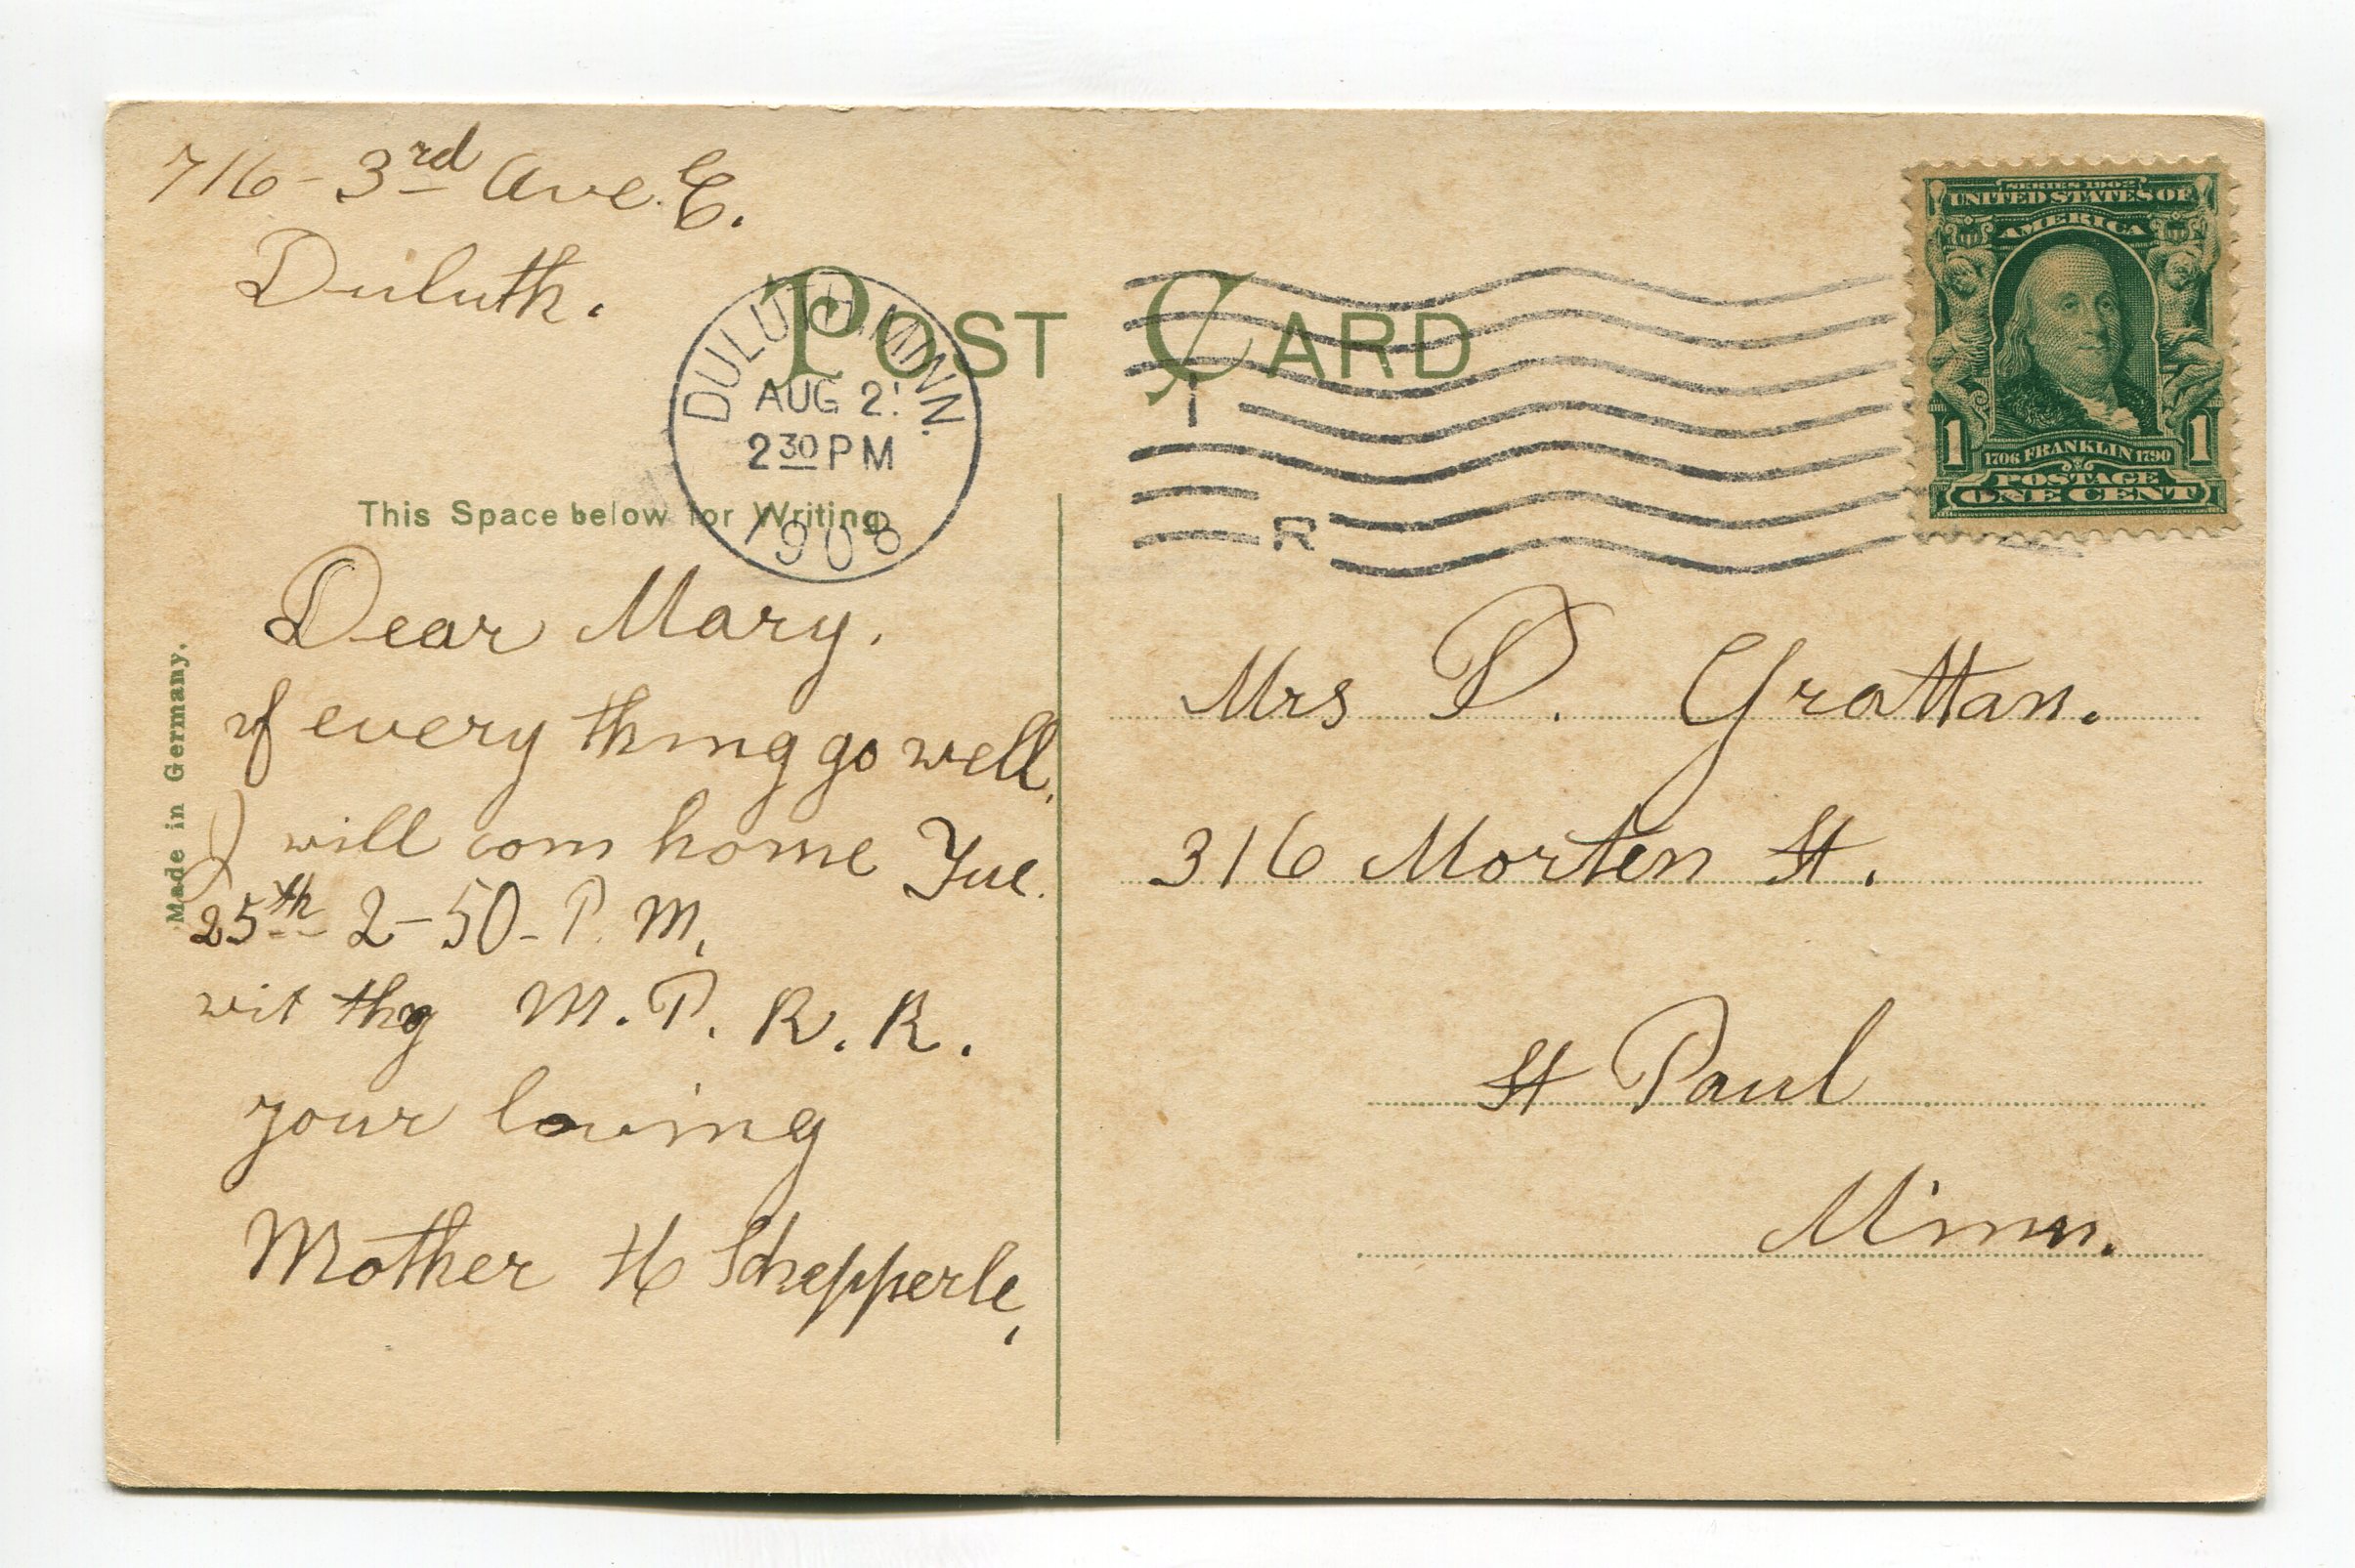 716 - 3rd Ave. E.
Duluth.
POST CARD
DULUTH, MINN.
AUG 2
2 30 PM
1908
I
R
SERIES 1902
UNITED STATES OF
AMERICA
1 1
1706 FRANKLIN 1790
POSTAGE
ONE CENT
This Space below for Writing
Made in Germany.
Dear Mary.
if every thing go well.
I will com home Tue.
25th 2-50- P. M.
wit M. P. R. R.
your loving
Mother H Schepperle,
Mrs P. Grattan.
316 Morten St.
St Paul
Minn.